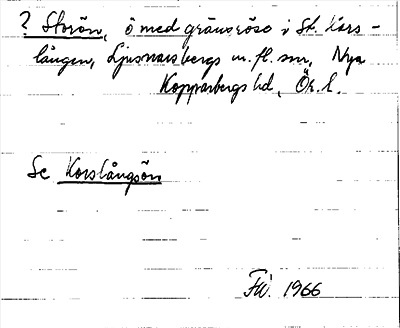 ? Storön, ö med gränsröse i St. Kors-
lången, Ljusnarsbergs m. fl. snr, Nya
Kopparbergs hd, Ör. l.
Se Korslångsön
1966